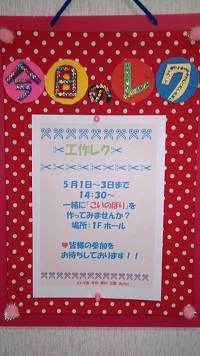 今日のレク
工作レク
５月１日～３日まで
１４：３０～
一緒に「こいのぼり」を
作ってみませんか？
場所：１Ｆ ホール
♥皆様の参加を
お待ちしております！！